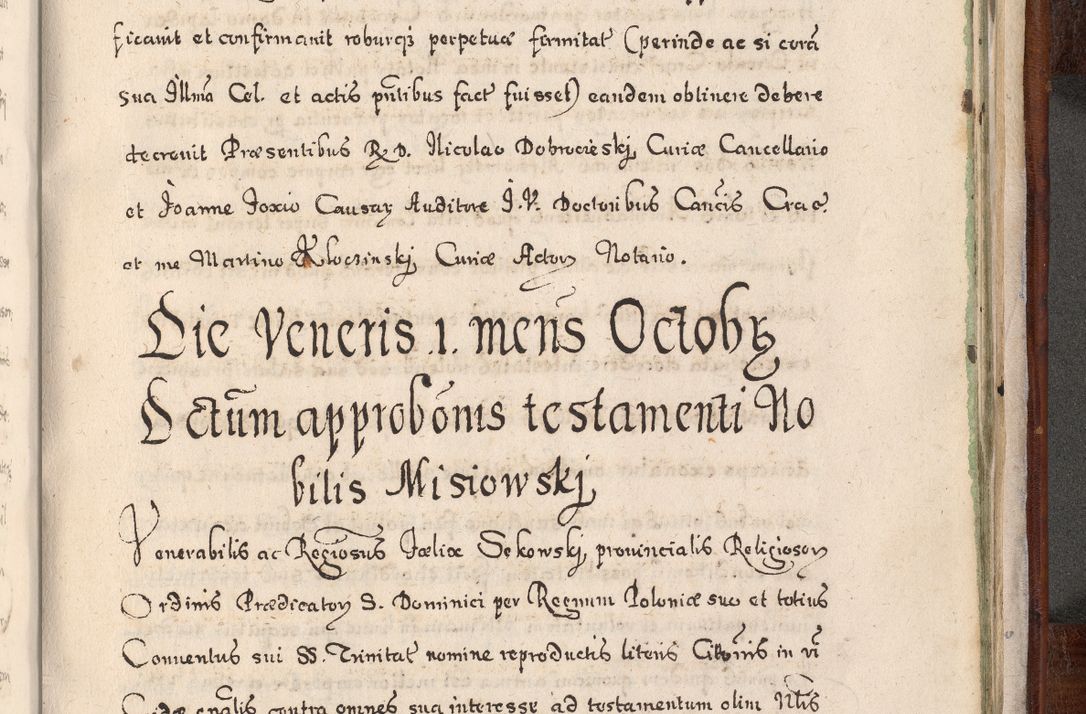 ficauit et confirmauit roburq꞉ perpetuæ firmitat (perinde ac si corā
sua Illma Cel. et actis pntibus fact fuisset) eandem obtinere debere
decreuit Præsentibus R. D. Nicolao Dobrocieskj Curiæ Cancellario
et Joanne Foxio Causaꝝ Auditore I. V. Doctoribus Cancis Crac.
et me Martino Kloczinskj Curiæ Actoꝝ Notario.
Die Veneris .1. mens Octobꝶ
Actum approbōnis testamenti No
bilis Misiowskj
Venerabilis ac Regiosus Sękowskj prouincialis Religiosoꝝ
Ordinis Prædicatoꝝ S. Dominici per Regnum Poloniæ suo et totius
Conuentus sui SS. Trinitat nomine reproductis literis Citōnis in vī
contra omnes sua interesse ad testamentum olim Nblis